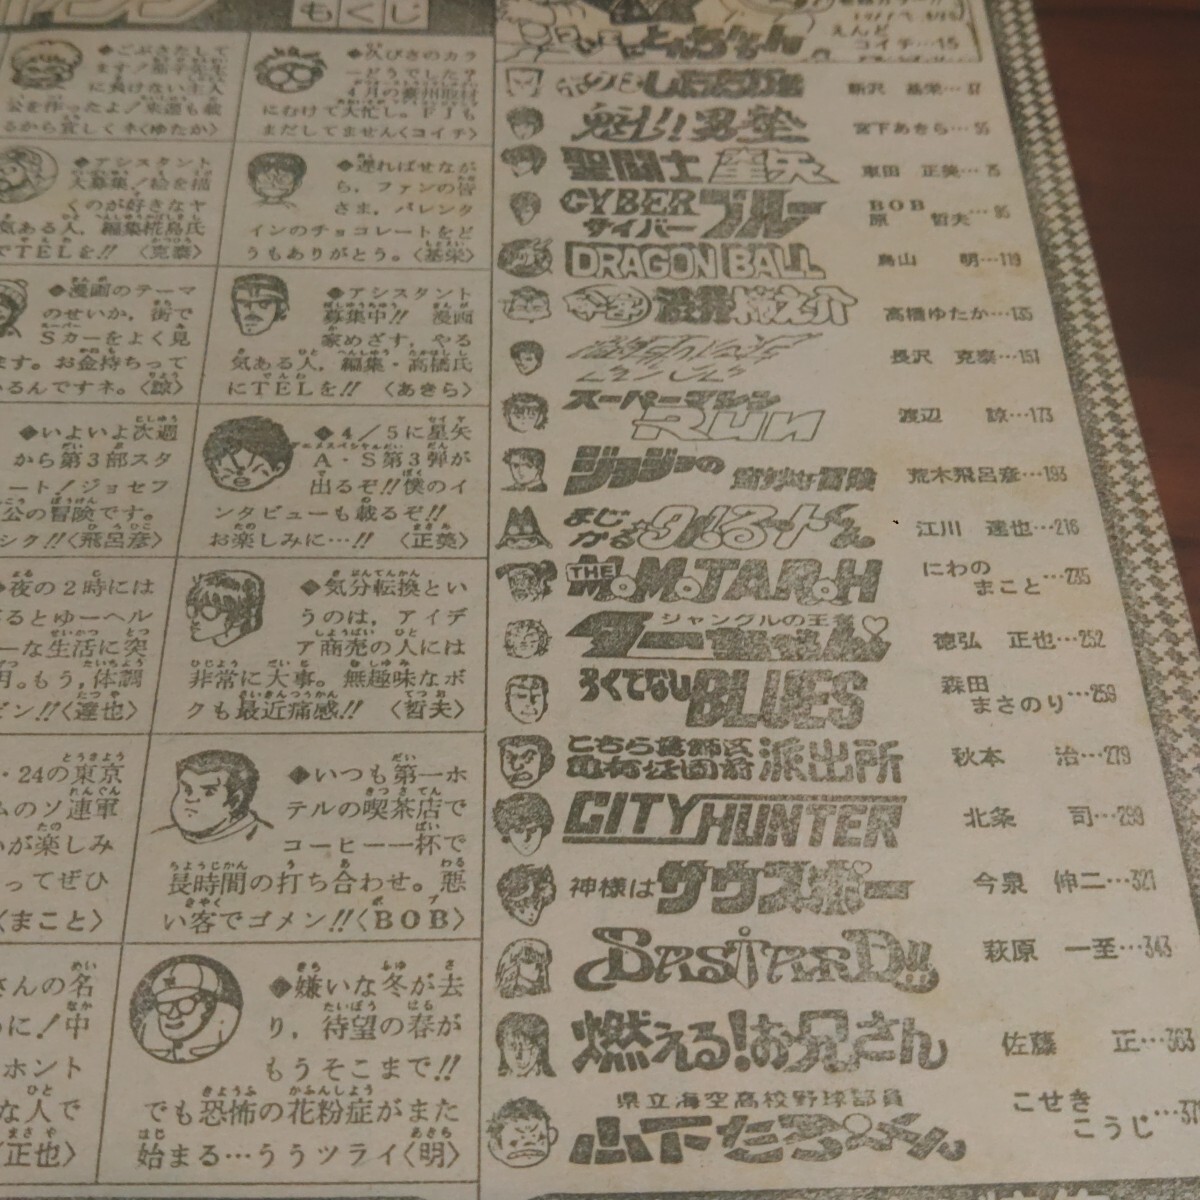 もくじ
えんど
コイチ…15
ハイスクール!奇面組
新沢　基栄…37
魁!!男塾
宮下あきら…55
聖闘士星矢
車田　正美…75
CYBERブルー
サイバー
BOB
原　哲夫…95
DRAGON BALL
鳥山　明…119
高橋ゆたか…135
長沢　克泰…157
スーパーマシン
RUN
渡辺　諒…173
ジョジョの
奇妙な冒険
荒木飛呂彦…193
まじかる☆タルるートくん
江川　達也…216
THE MOMOTAROH
にわの
まこと…235
ジャングルの王者♡
ターちゃん
徳弘　正也…252
ろくでなしBLUES
森田
まさのり…259
こちら葛飾区
亀有公園前派出所
秋本　治…279
CITY HUNTER
北条　司…299
神様はサウスポー
今泉　伸二…321
BASTARD!!
萩原　一至…343
燃える!お兄さん
佐藤　正…363
県立海空高校野球部員
山下たろーくん
こせき
こうじ…37
◆久びさのカラ
ーどうでした？
4月の豪州取材
にむけて大忙し。ＰＦも
まだしてません〈コイチ〉
◆遅ればせなが
ら，ファンの皆
さま，バレンタ
インのチョコレートをど
うもありがとう。〈基栄〉
◆アシスタント
募集中!!　漫画
家めざす，やる
気ある人，編集・高橋氏
にＴＥＬを!!　〈あきら〉
◆4／5に星矢
Ａ・Ｓ第3弾が
出るぞ!!僕のイ
ンタビューも載るぞ!!
お楽しみに…!!　〈正美〉
◆気分転換とい
うのは，アイデ
ア商売の人には
非常に大事。無趣味なボ
クも最近痛感!!　〈哲夫〉
◆いつも第一ホ
テルの喫茶店で
コーヒー一杯で
長時間の打ち合わせ。悪
い客でゴメン!!〈ＢＯＢ〉
◆嫌いな冬が去
り，待望の春が
もうそこまで!!
でも恐怖の花粉症がまた
始まる…ううツライ〈明〉
◆ごぶさたして
ます!
に負けない主人
公を作ったよ!来週も載
るから宜しくネ〈ゆたか〉
◆アシスタント
大募集!絵を描
くのが好きなヤ
気ある人，編集椛島氏
でＴＥＬを!!　〈克泰〉
◆漫画のテーマ
のせいか，街で
Ｓカーをよく見
ます。お金持ちって
いるんですネ。〈諒〉
◆いよいよ次週
から第3部スタ
ート!ジョセフ
公の冒険です。
シク!!〈飛呂彦〉
夜の2時には
るとゆーヘル
ーな生活に突
月。もう，体調
ゼン!!〈達也〉
・24の東京
ムのソ連軍
が楽しみ
ってぜひ
〈まこと〉
さんの名
に!中
ホント
な人で
正也〉